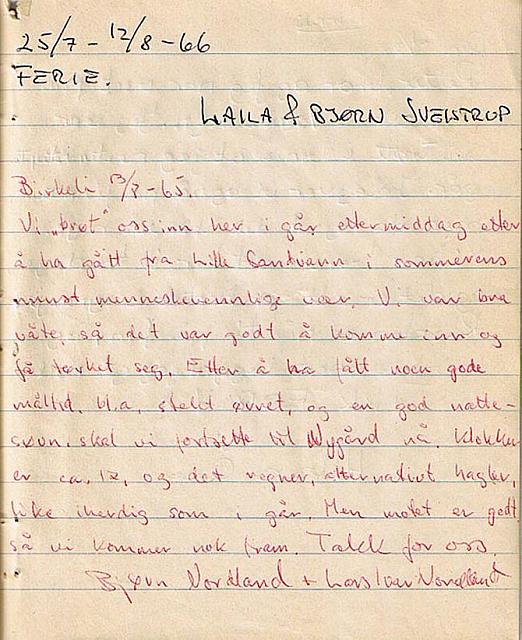 25/7 - 12/8 - 66
FERIE.
LAILA & BJØRN SVEISTRUP
Birkeli 13/8 - 65.
Vi „brøt" oss inn her i går ettermiddag etter
å ha gått fra Lille Sandvann i sommerens
minst menneskevennlige vær. Vi var bra
våte, så det var godt å komme inn og
få tørket seg. Etter å ha fått noen gode
måltid, bl.a. stekt ørret, og en god natte-
søvn, skal vi fortsette til Nygård nå. Klokken
er ca. 12, og det regner, alternativt hagler,
like iherdig som i går. Men motet er godt
så vi kommer nok fram. Takk for oss.
Bjørn Nordland + Lars Iver Nordland